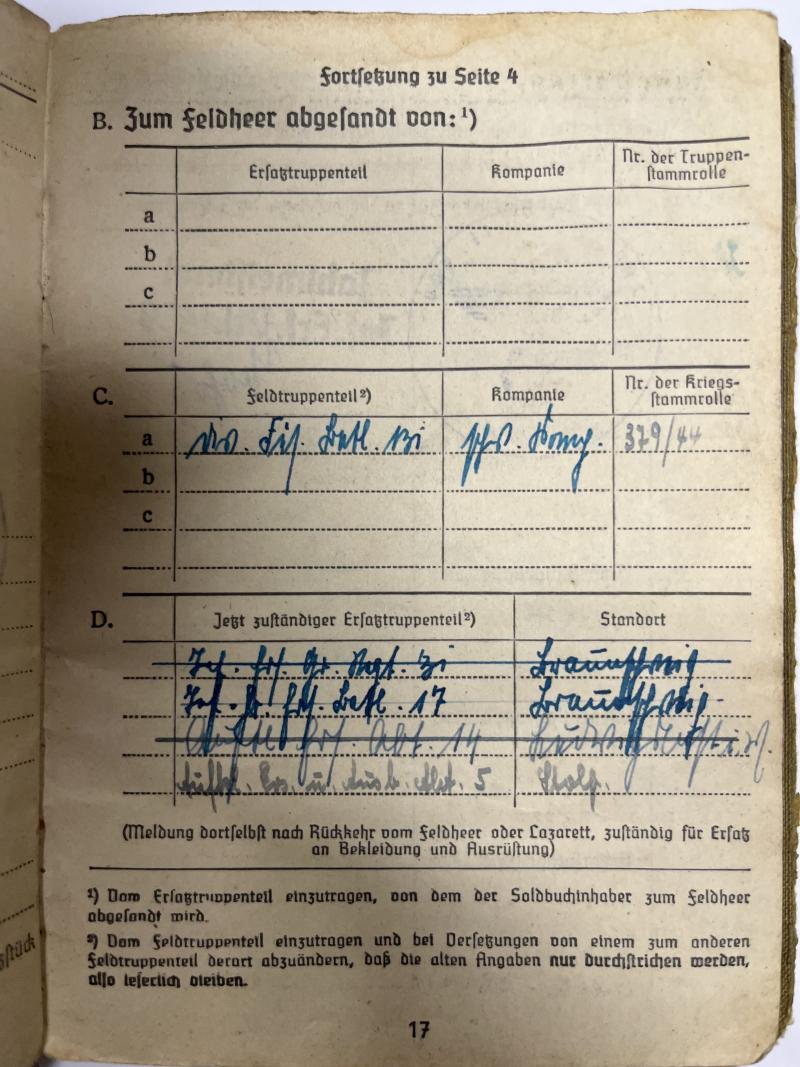 Fortsetzung zu Seite 4
B. Zum Feldheer abgesandt von: ¹)
Ersatztruppenteil Kompanie Nr. der Truppen-
stammrolle
a
b
c
C. Feldtruppenteil ²) Kompanie Nr. der Kriegs-
stammrolle
a Div. Füs. Batl. 31 schw. Komp. 379/44
b
c
D. Jetzt zuständiger Ersatztruppenteil ²) Standort
Ers. Gr. Regt. 31 Braunschweig
Gr. Ers. Batl. 17 Braunschweig
Ers. Abt. 14
Aufkl. Ers. u. Ausb. Abt. 5 Stolp.
(Meldung dortselbst nach Rückkehr vom Feldheer oder Lazarett, zuständig für Ersatz
an Bekleidung und Ausrüstung)
¹) Vom Ersatztruppenteil einzutragen, von dem der Soldbuchinhaber zum Feldheer
abgesandt wird.
²) Vom Feldtruppenteil einzutragen und bei Versetzungen von einem zum anderen
Feldtruppenteil derart abzuändern, daß die alten Angaben nur durchstrichen werden,
also leserlich bleiben.
17
stück